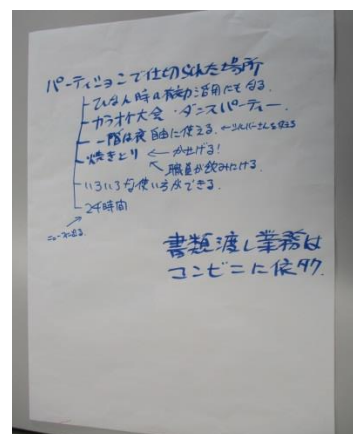 パーティションで仕切られた場所
ひなん時の有効活用にもなる
カラオケ大会・ダンスパーティー
一階は夜自由に使える ←シルバーさんを雇える
焼きとり ← かせげる!
職員が飲みに行ける
いろいろな使い方ができる
24時間
ニュースに出る
書類渡し業務は
コンビニに依タク